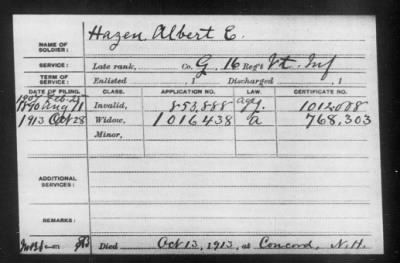 Hazen Albert E.
NAME OF SOLDIER:
SERVICE: Late rank, Co. G, 16 Reg't Vt. Inf
TERM OF SERVICE: Enlisted , 1 Discharged , 1
DATE OF FILING. CLASS. APPLICATION NO. LAW. CERTIFICATE NO.
1907 Feb. 25
1890 Aug 11 Invalid, 853,888 age. 1012008
1913 Oct 28 Widow, 1016438 a 768,303
Minor,
ADDITIONAL SERVICES:
REMARKS:
Died Oct 13, 1913, at Concord, N.H.